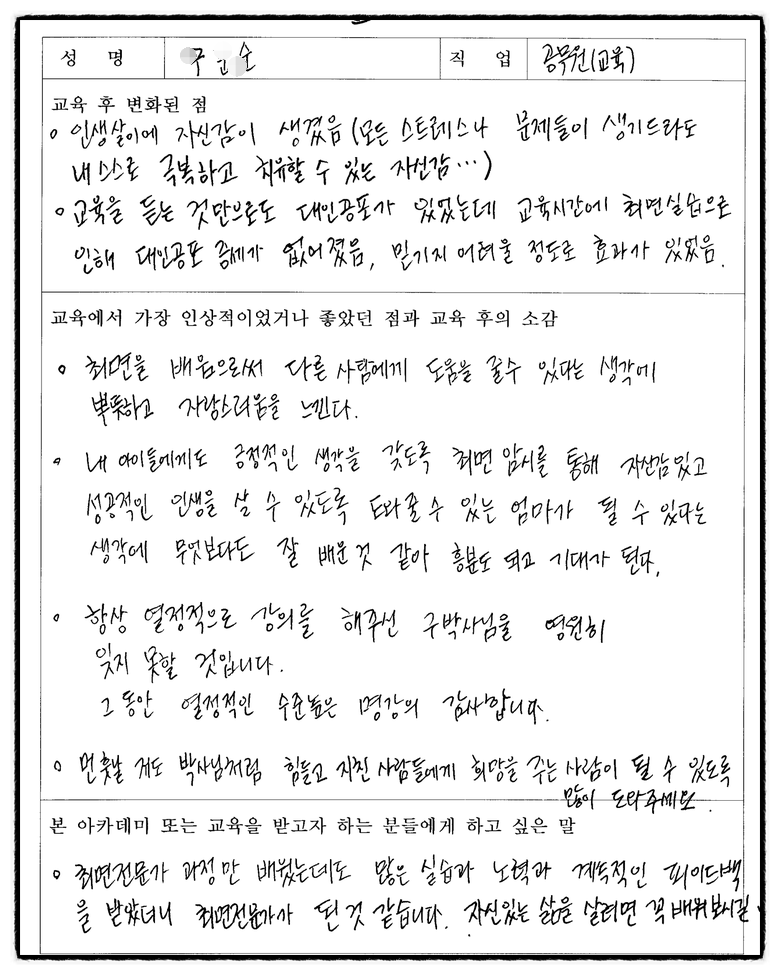 성 명 구 순 직 업 공무원(교육)
교육 후 변화된 점
o 인생살이에 자신감이 생겼음 (모든 스트레스나 문제들이 생기드라도
내 스스로 극복하고 치유할 수 있는 자신감…)
o 교육을 듣는 것만으로도 대인공포가 있었는데 교육시간에 최면실습으로
인해 대인공포 증세가 없어졌음, 믿기지 어려울 정도로 효과가 있었음.
교육에서 가장 인상적이었거나 좋았던 점과 교육 후의 소감
o 최면을 배움으로써 다른 사람에게 도움을 줄수 있다는 생각에
뿌듯하고 자랑스러움을 느낀다.
o 내 아이들에게도 긍정적인 생각을 갖도록 최면 암시를 통해 자신감있고
성공적인 인생을 살 수 있도록 도와줄 수 있는 엄마가 될 수 있다는
생각에 무엇보다도 잘 배운 것 같아 흥분도 되고 기대가 된다.
o 항상 열정적으로 강의를 해주신 구박사님을 영원히
잊지 못할 것입니다.
그 동안 열정적인 수준높은 명강의 감사합니다.
o 먼훗날 저도 박사님처럼 힘들고 지친 사람들에게 희망을 주는 사람이 될 수 있도록
많이 도와주세요.
본 아카데미 또는 교육을 받고자 하는 분들에게 하고 싶은 말
o 최면전문가 과정만 배웠는데도 많은 실습과 노력과 계속적인 피이드백
을 받았더니 최면전문가가 된 것 같습니다. 자신있는 삶을 살려면 꼭 배워보시길.